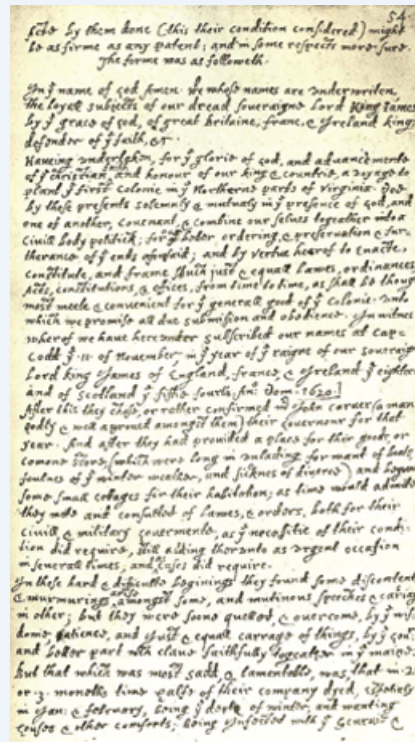 54.
facte by them done (this their condition considered) might
be as firme as any patent; and in some respects more sure.
The forme was as followeth.
In yͤ name of god Amen. We whose names are underwriten,
the loyall subjects of our dread soveraigne Lord King James
by yͤ grace of god, of great britaine, franc, & Ireland king,
defender of yͤ faith, &c
Haveing undertaken, for yͤ glorie of god, and advancemente
of yͤ christian faith and honour of our king & countrie, a voyage to
plant yͤ first colonie in yͤ Northerne parts of Virginia. Doe
by these presents solemnly & mutualy in yͤ presence of god, and
one of another, covenant, & combine our selves togeather into a
civill body politick; for our better ordering, & preservation & fur=
therance of yͤ ends aforesaid; and by vertue hearof to enacte,
constitute, and frame such just & equall lawes, ordinances,
Acts, constitutions, & offices, from time to time, as shall be though
most meete & convenient for yͤ generall good of yͤ Colonie: unto
which we promise all due submission and obedience. In witnes
wherof we have hereunder subscribed our names at Cap=
Codd yͤ .11. of November, in yͤ year of yͤ raigne of our soveraigne
Lord king James of England, france, & Ireland yͤ eighteen
and of Scotland yͤ fiftie fourth. Anͦ: Dom. 1620.]
After this they chose, or rather confirmed mͬ John carver (a man
godly & well approved amongst them) their governour for that
year. And after they had provided a place for their goods, or
comone store, (which were long in unlading for want of boats,
foulnes of yͤ winter weather, and sicknes of diverce) and begune
some small cottages for their habitation; as time would admitte
they mette and consulted of lawes, & orders, both for their
civill & military govermente, as yͤ necessitie of their condi=
tion did require, still adding therunto as urgent occasion
in severall times, and as cases did require.
In these hard & difficulte beginings they found some discontents
& murmurings arise amongst some, and mutinous speeches & cariag
in other; but they were soone quelled, & overcome, by yͤ wis=
dome, patience, and just & equall carrage of things, by yͤ govͬ
and better part wͨͪ clave faithfully togeather in yͤ maine.
but that which was most sadd, & lamentable, was, that in .2.
or .3. moneths time halfe of their company dyed, espetialy
in Jan: & february, being yͤ depth of winter, and wanting
houses & other comforts; being infected with yͤ scurvie &